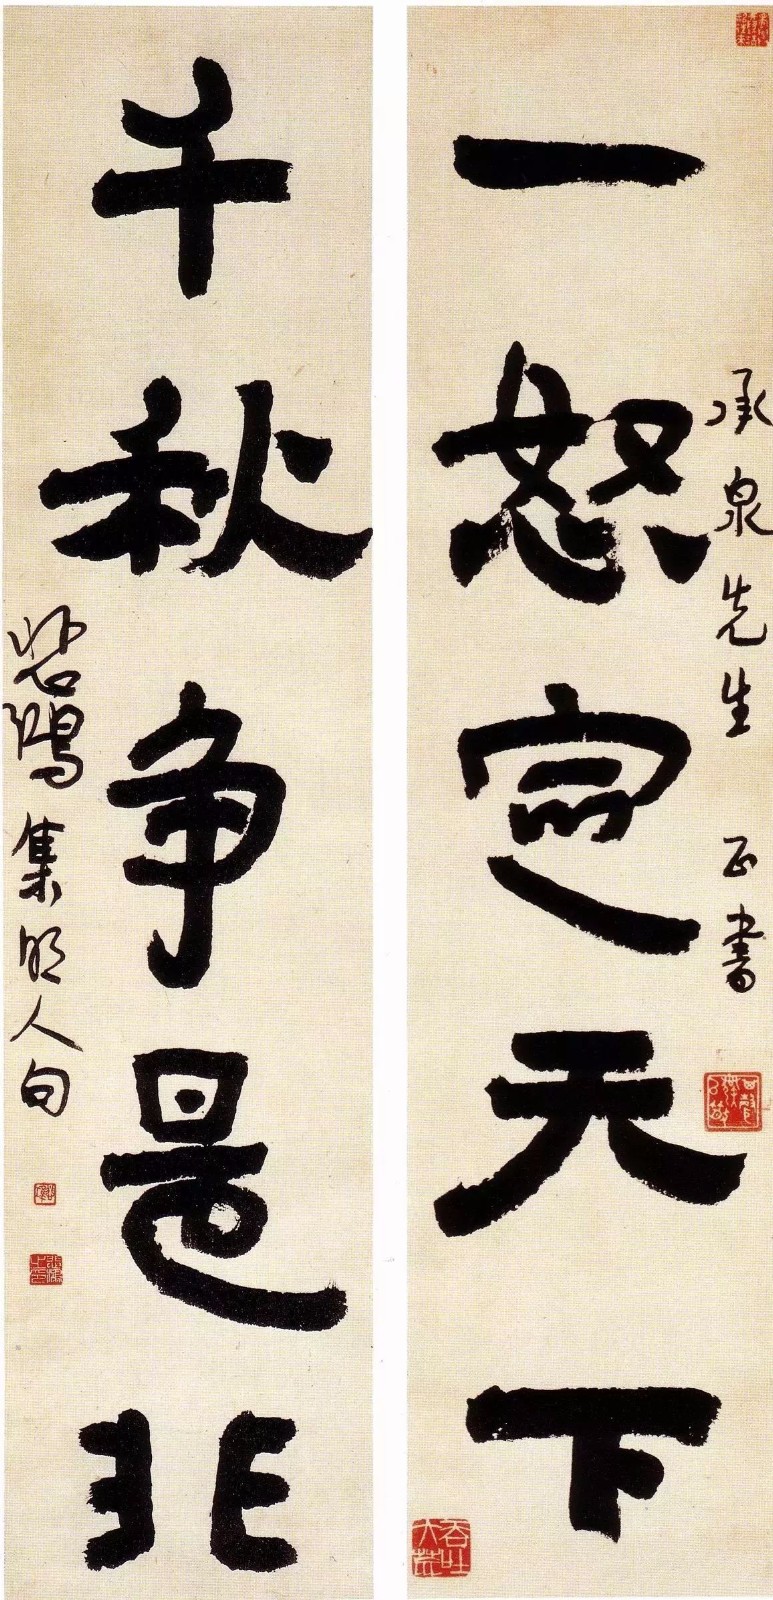 一怒定天下
承泉先生 正書
千秋争是非
悲鴻集明人句
吞吐大荒